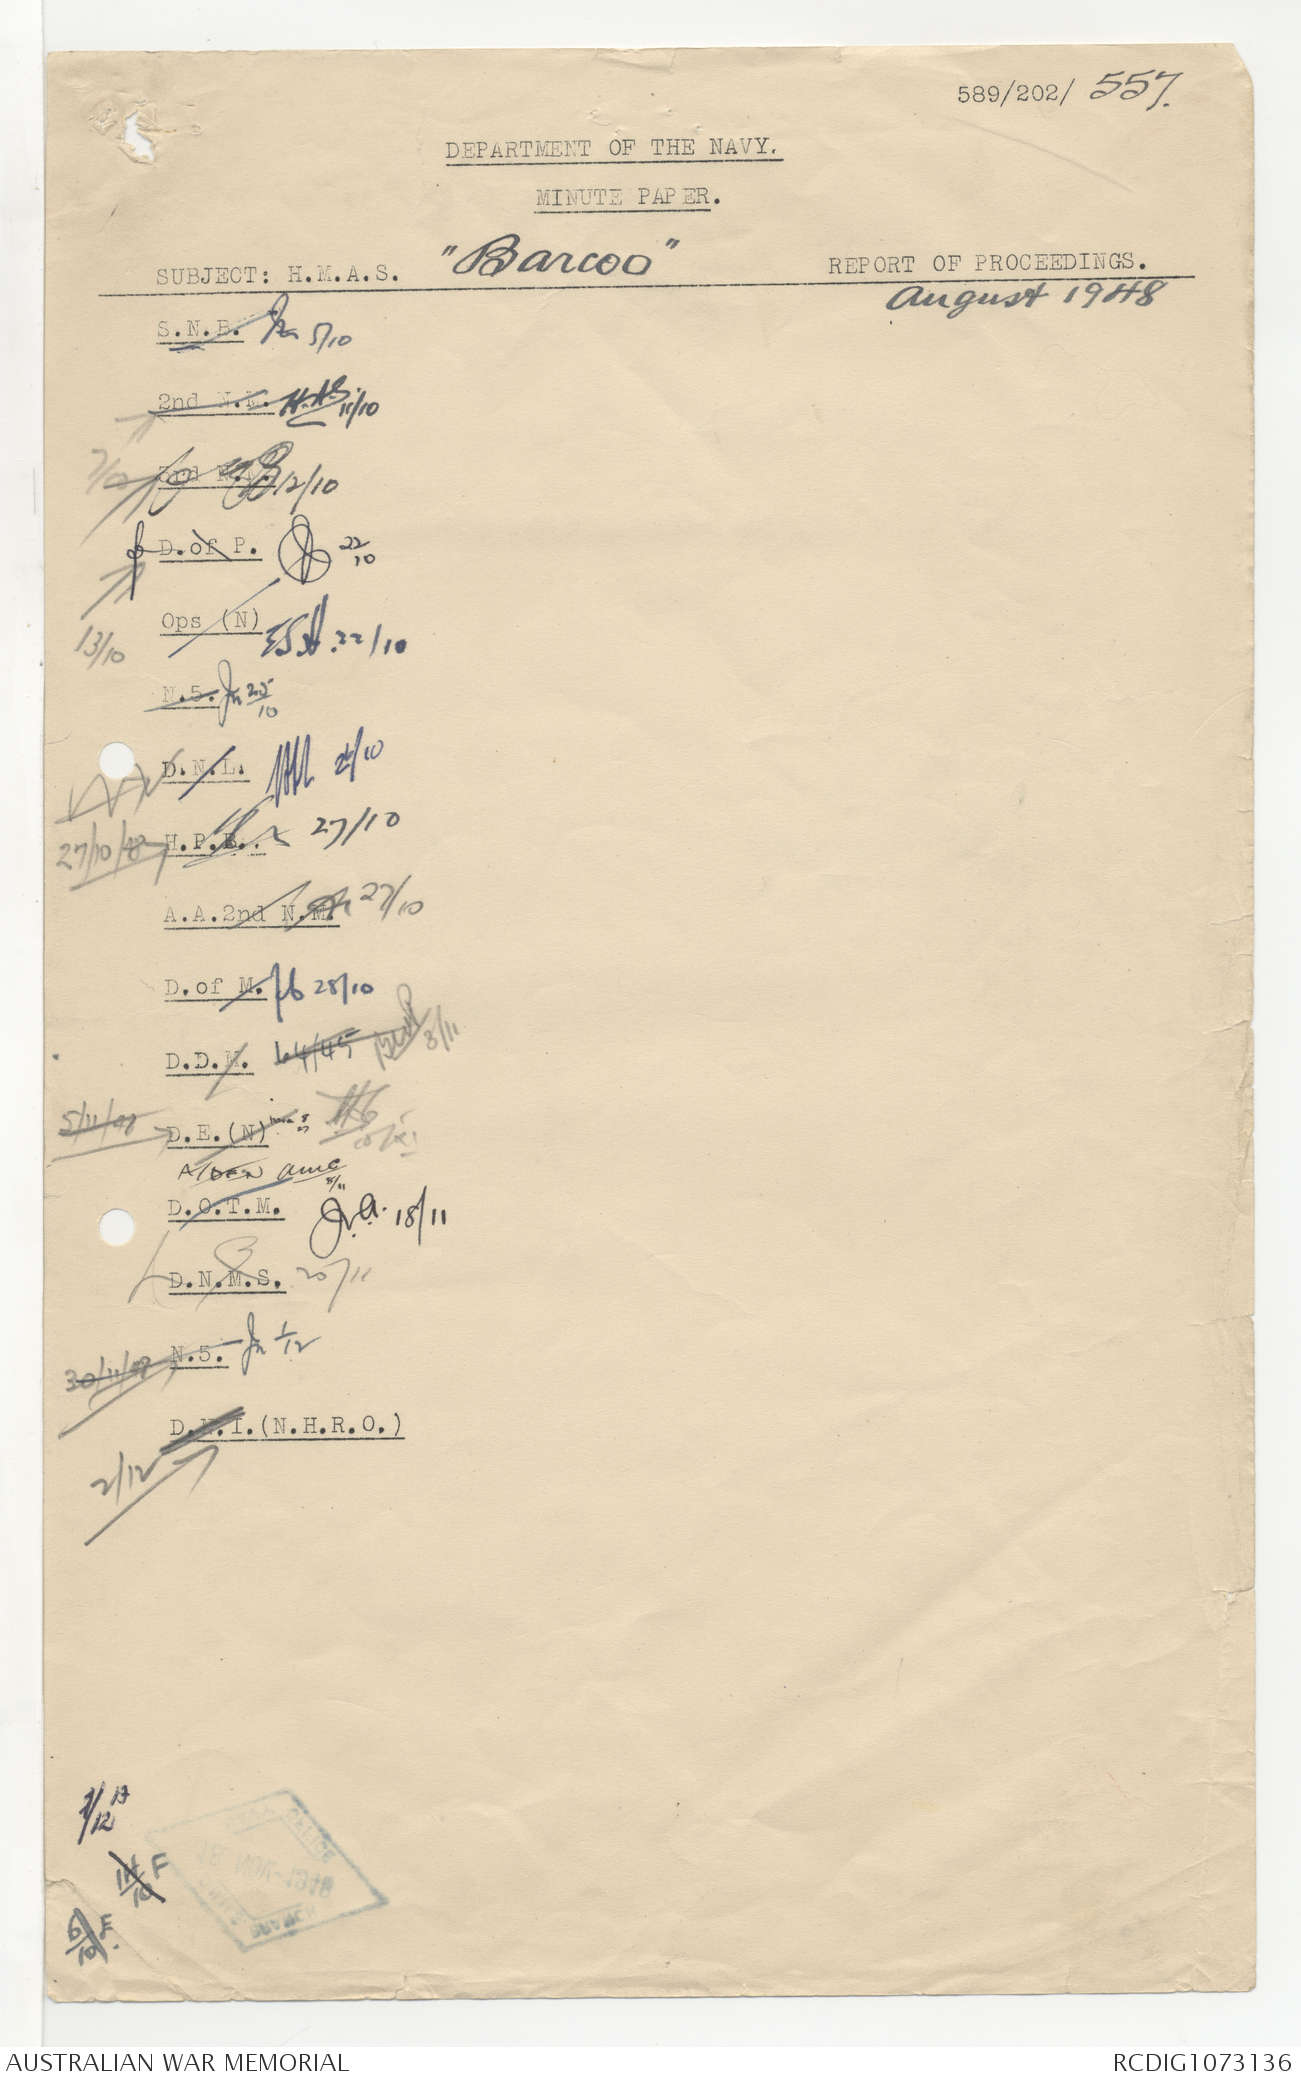 589/202/ 557.
DEPARTMENT OF THE NAVY.
MINUTE PAPER.
SUBJECT: H.M.A.S. "Barcoo" REPORT OF PROCEEDINGS.
August 1948
S.N.B. 5/10
2nd N.M. 11/10
7/10
3rd N.M. 12/10
D.of P. 22/10
Ops (N) 22/10
13/10
N.5. 25/10
D.N.L. 26/10
27/10/48 H.P.B. 27/10
A.A.2nd N.M. 27/10
D.of M. 28/10
D.D.M. 3/11
5/11/48 D.E.(N)
8/11
D.O.T.M. 18/11
D.N.M.S. 25/11
30/11/48 N.5. 1/12
D.N.I.(N.H.R.O.)
2/12
F
6/10 F.
18 NOV 1948
AUSTRALIAN WAR MEMORIAL RCDIG1073136